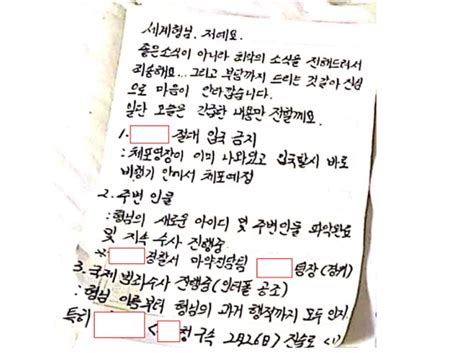 세계형님. 저예요.
좋은소식이 아니라 최악의 소식을 전해드려서
죄송해요... 그리고 부담까지 드리는 것같아 진심
으로 마음이 안타깝습니다.
일단 오늘은 긴급한 내용만 전할께요.
1. 절대 입국 금지
: 체포영장이 이미 나와있고 입국할시 바로
비행기 안에서 체포예정
2. 주변 인물
: 형님의 새로운 아이디 및 주변인물 파악완료
및 지속 수사 진행중
* 경찰서 마약전담팀 팀장 (경계)
3. 국제 범죄수사 진행중 (인터폴 공조)
: 형님 이름부터 형님의 과거 행적까지 모두 인지.
특히 < 청 구속 2月26日> 진술로